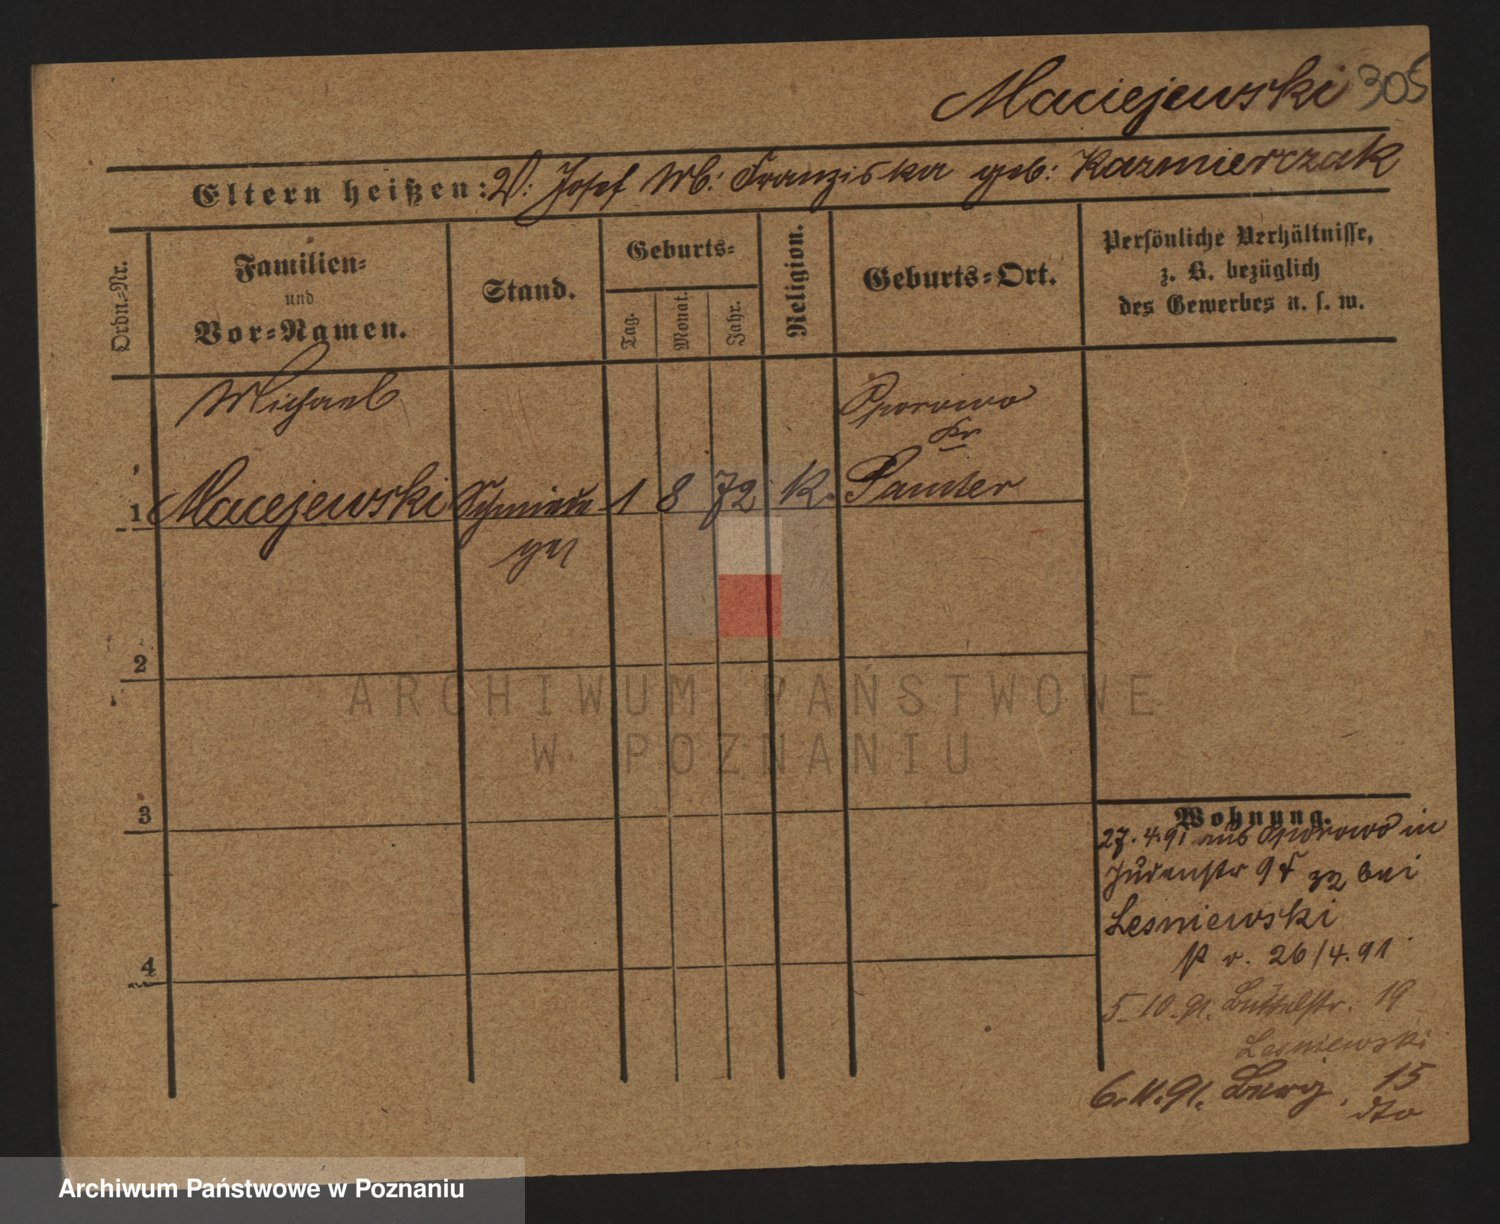 Maciejewski 305
Eltern heißen: V: Josef Mb: Franziska geb: Kazmierczak
Ordn.-Nr.
Familien- und Vor-Namen.
Stand.
Geburts-
Tag. Monat. Jahr.
Religion.
Geburts-Ort.
Persönliche Verhältnisse,
z. B. bezüglich
des Gewerbes u. s. w.
Michael
Oporowo
Kr
1 Macejewski Schmiede 1 8 72 K. Samter
ges
2
3
4
Wohnung.
27.4.91 aus Oporowo in
Judenstr 9 bei
Lesniewski
v. 26/4.91
5-10.91. Büttelstr. 19
Lesniewski
6.11.91. Berg. 15
dto
ARCHIWUM PAŃSTWOWE
W POZNANIU
Archiwum Państwowe w Poznaniu